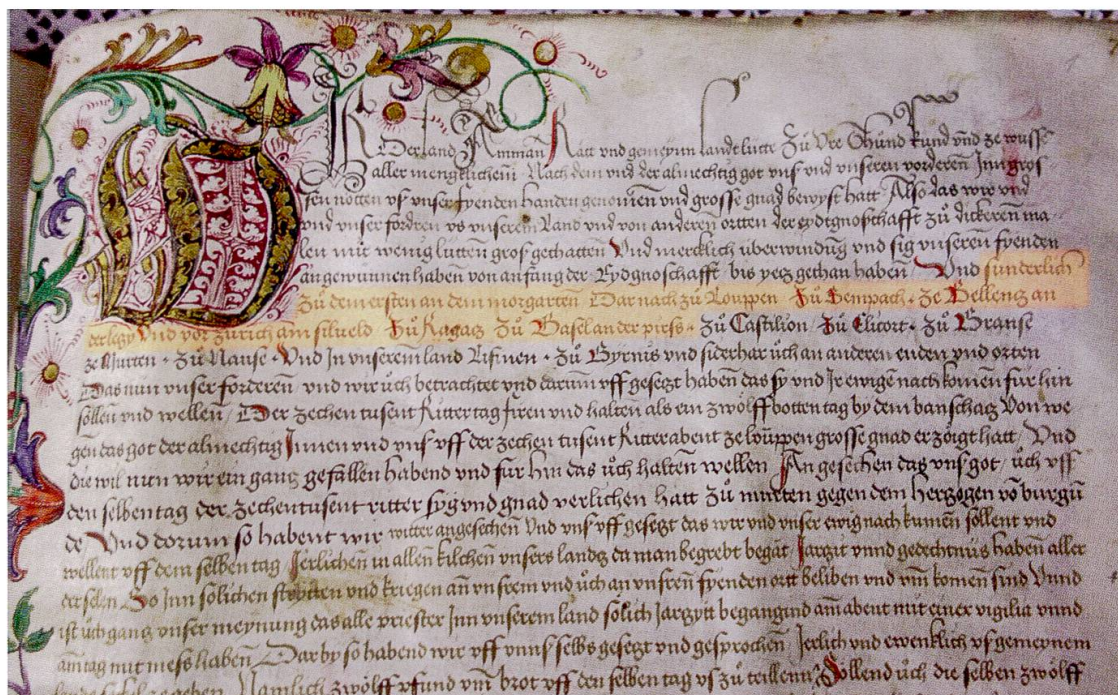 WIR Der land Amman Ratt vnd gemeynn landtlutte Zů Vre Thund kund vnd ze wusse
aller mengklichem Nach dem vnd der almechtig got vns vnd vnseren vorderen Inn gros
sen notten vs vnser fyenden handen genomen vnd grosse gnad bewyst hatt Also das wir vnd
vnd vnser fordren vs vnserem Land vnd von anderen ortten der eydtgnoschafft zů dickeren ma
len mit wenig lutten gros gethatten Vnd mercklich vberwindung vnd sig vnseren fyenden
angewunnen haben von anfang der Eydgnoschafft bis yetz gethan haben Vnd sunderlich
Zů dem ersten an dem morgarten Dar nach zů Louppen Zů Sempach ze Bellentz an
der letzy Vnd vor zürich am silueld Zů Ragatz Zů Basel an der pirss Zů Castilion Zů Elicort Zů Granse
ze Murten Zů Nanse Vnd In vnserem land Lifinen Zů Gyrnis vnd siderhar ůch an anderen enden vnd orten
Das nun vnser forderen vnd wir ůch betrachtet vnd darum vff gesetzt haben das sy vnd Ir ewigen nach komen fur hin
sollen vnd wellen Der zechen tusent Ritter tag firen vnd halten als ein zwolff botten tag by dem banschatz Von we
gen das got der almechtig Innen vnd vns vff der zechen tusent Ritter abent ze louppen grosse gnad erzoigt hatt Vnd
die wil nun wir ein gang gefallen habend vnd fur hin das ůch halten wellen An gesechen das vns got ůch vff
den selben tag der zechentusent ritter syg vnd gnad verlichen hatt Zů murten gegen dem Hertzogen vo burgu
de Vnd dorum so habent wir witter angesechen Vnd vns vff gesetzt das wir vnd vnser ewig nach kumen sollent vnd
wellent vff dem selben tag Jerlichen in allen kilchen vnsers landz da man begrebt begat Jarzit vnnd gedechtnus haben aller
der selen So Inn solichen strytten vnd kriegen an vnsrem vnd ůch an vnsren fyenden ortt beliben vnd vm komen sind Vnnd
ist ůch gantz vnser meynung das alle priester Inn vnserem land solich Jarzytt begangind am abent mit einer vigilia vnnd
am tag mit mess haben Dar by so habend wir vff vnns selbs gesetzt vnd gesprochen Jerlich vnd ewenklich vs gemeynem
lands seckel ze geben Namlich zwolff pfund vm brot vff den selben tag vs zů teillenn Sollend ůch die selben zwolff